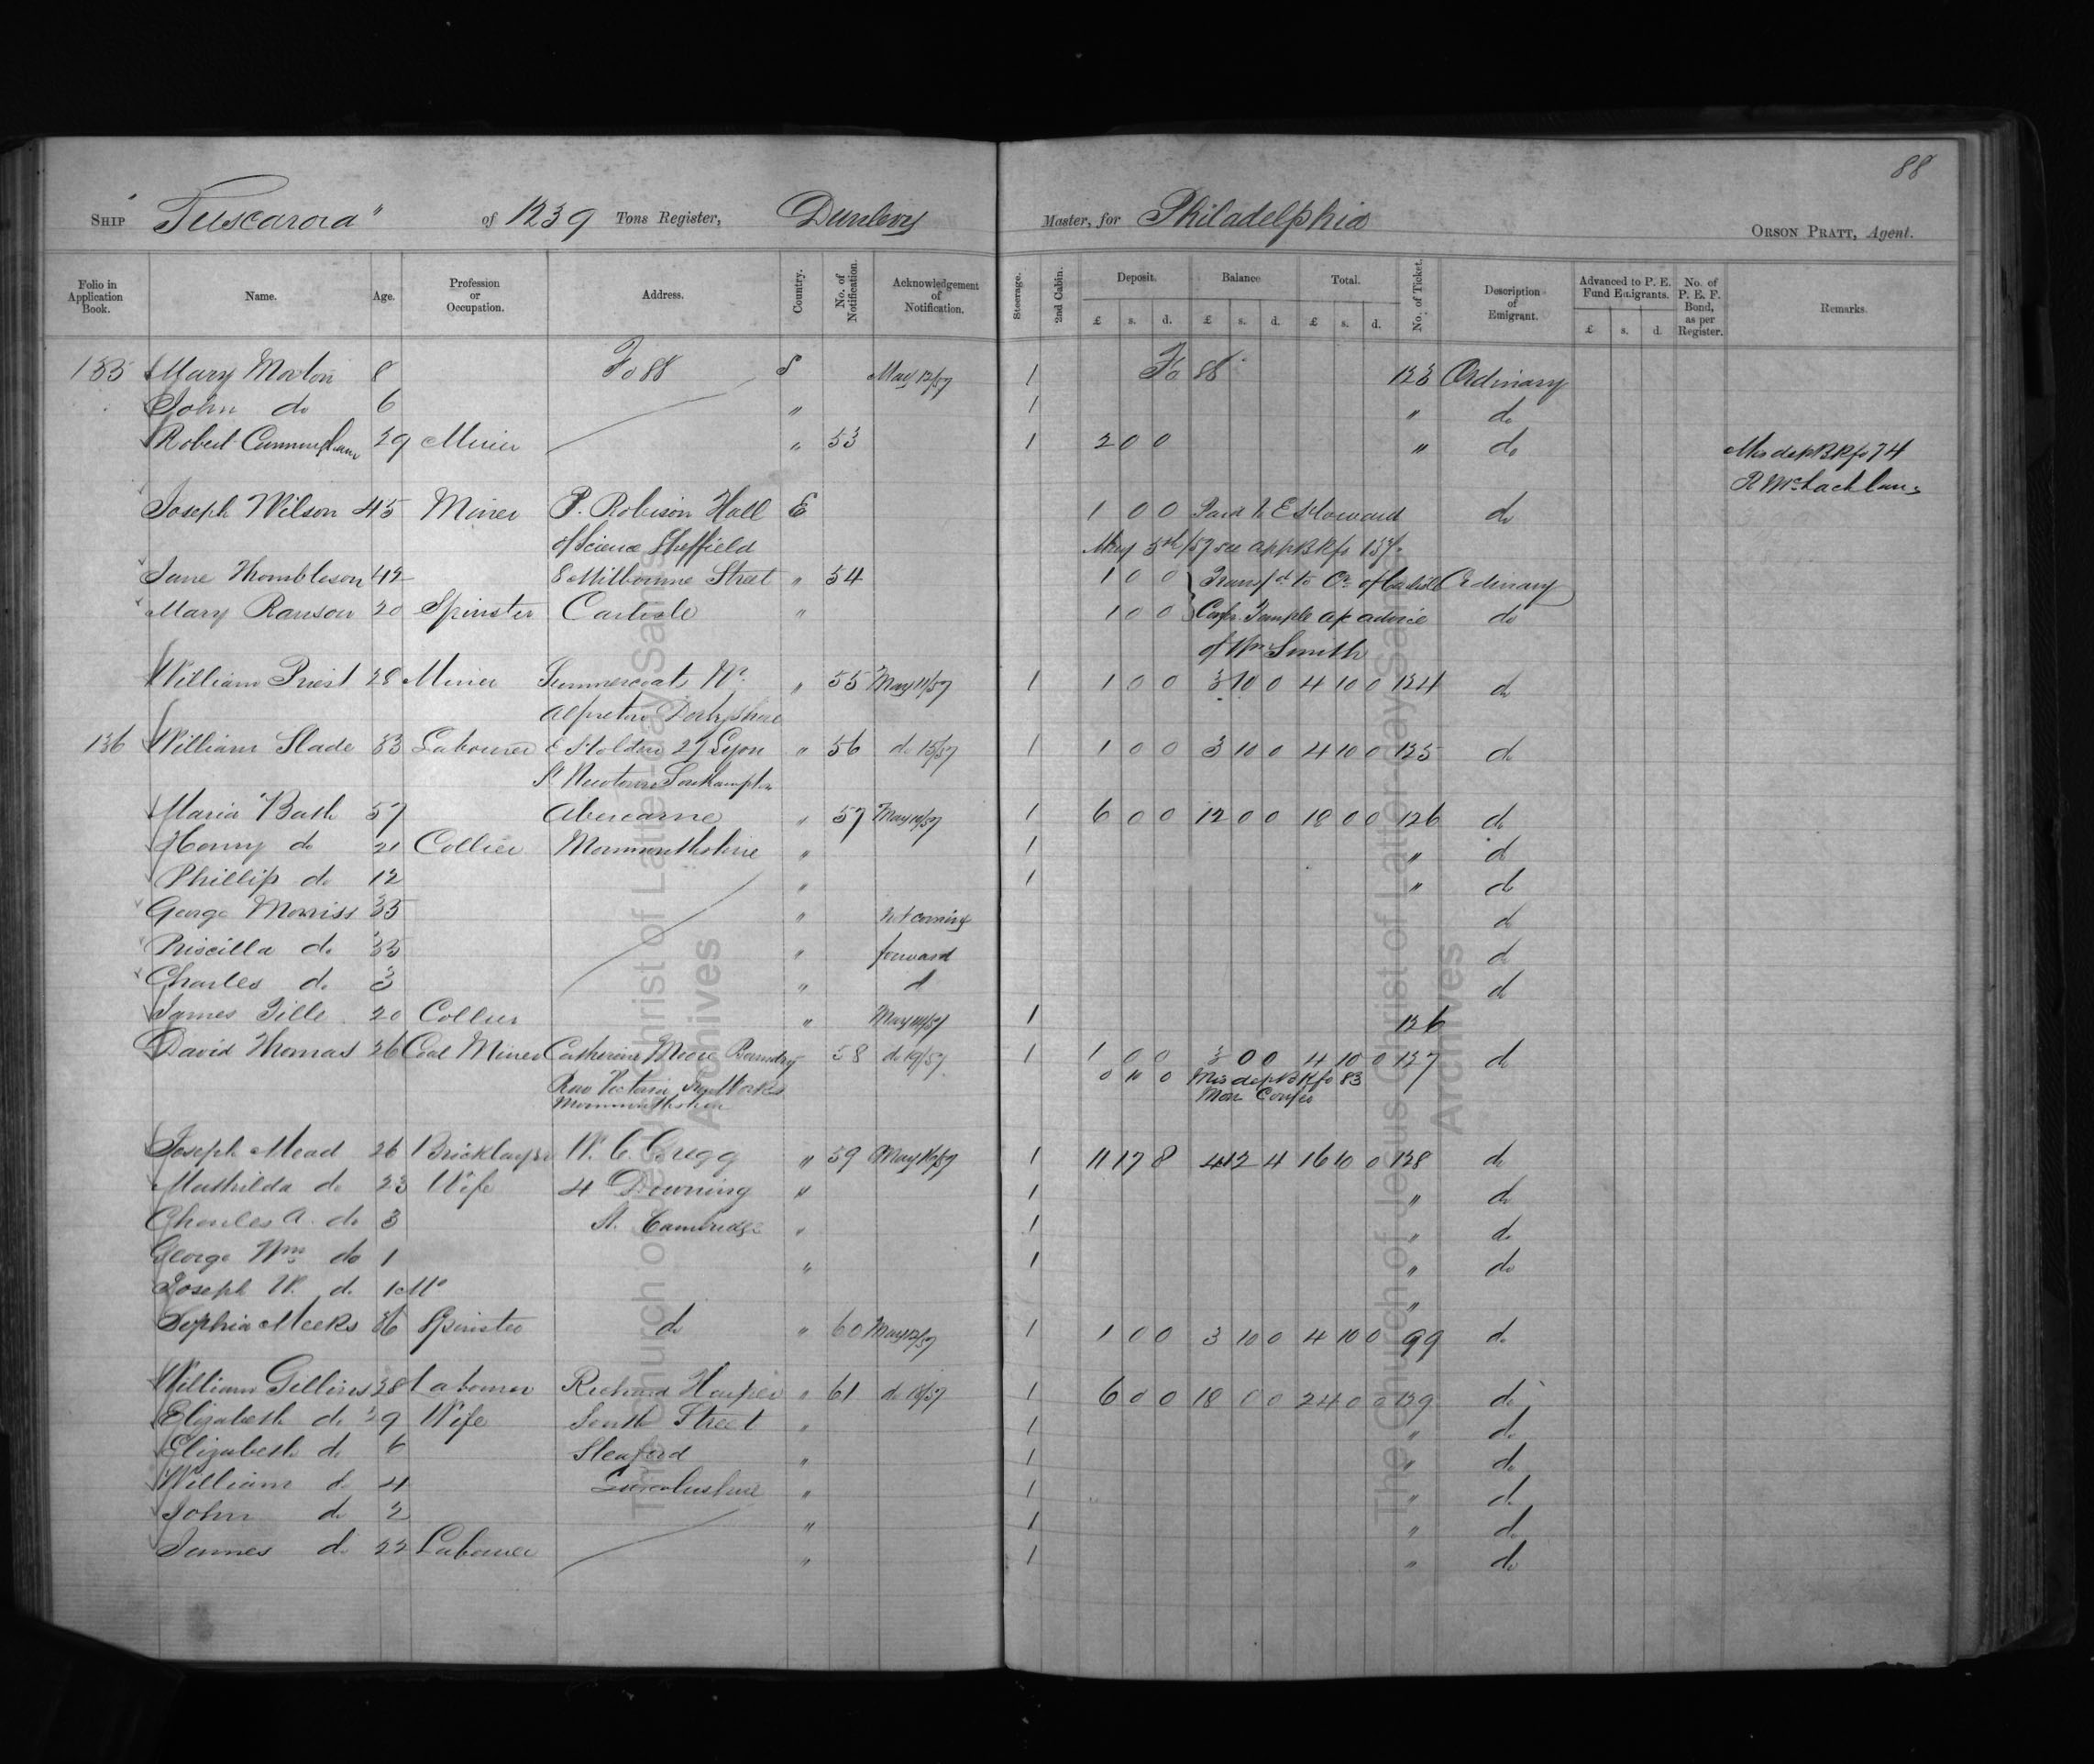 88
Ship "Tuscarora" of 1239 Tons Register, Dunlevy Master, for Philadelphia Orson Pratt, Agent.
Folio in Application Book. Name. Age. Profession or Occupation. Address. Country. No. of Notification. Acknowledgement of Notification. Steerage. 2nd Cabin. Deposit. £ s. d. Balance £ s. d. Total. £ s. d. No. of Ticket. Description of Emigrant. Advanced to P. E. Fund Emigrants. £ s. d. No. of P. E. F. Bond, as per Register. Remarks.
135 Mary Morton 8 Fo 88 S May 12/57 1 Fo 88 123 Ordinary
John do 6 " 1 " do
Robert Cunningham 29 Miner " 53 1 2 0 0 " do Mis dep BK fo 74
R McLachlan
Joseph Wilson 45 Miner P. Robison Hall E 1 0 0 Paid to E Howard do
of Science Sheffield May 5th/57 see App BK fo 137.
Jane Thombleson 42 8 Milbourne Street " 54 1 0 0 Transfd to Cr of Carlisle Ordinary
Mary Ranson 20 Spinster Carlisle " 1 0 0 Confr Temple ap advice do
of Wm Smith
William Priest 28 Miner Summercoats Nr " 55 May 11/57 1 1 0 0 3 10 0 4 10 0 124 do
Alfreton Derbyshire
136 William Slade 33 Labourer E Holden 27 Lyon " 56 do 15/57 1 1 0 0 3 10 0 4 10 0 125 do
St Newtown Southampton
Maria Bath 57 Abercarne " 57 May 14/57 1 6 0 0 12 0 0 18 0 0 126 do
Henry do 21 Collier Monmouthshire " 1 " d
Phillip do 12 " 1 " do
George Morriss 35 " not coming do
Priscilla do 33 " forward do
Charles do 3 " d do
James Gille 20 Collier " May 14/57 1 126
David Thomas 26 Coal Miner Catherine Moore Boundary 58 do 19/57 1 1 0 0 3 0 0 4 10 0 127 do
0 10 0 Mis dep BK fo 83
Row Victoria Iron Works Mon Confr
Monmouthshire
Joseph Mead 26 Bricklayer W. C. Gregg " 59 May 16/57 1 11 17 8 4 12 4 16 10 0 128 do
Mathilda do 23 Wife 4 Downing " 1 " do
Charles A. do 3 St. Cambridge " 1 " do
George Wm do 1 " 1 " do
Joseph W. do 1 Mo "
Sophia Meeks 36 Spinster do " 60 May 12/57 1 1 0 0 3 10 0 4 10 0 99 do
William Gillins 28 Labourer Richard Harper " 61 do 18/57 1 6 0 0 18 0 0 24 0 0 129 do
Elizabeth do 29 Wife South Street " 1 " do
Elizabeth do 6 Sleaford " 1 " do
William do 4 Lincolnshire " 1 " do
John do 2 " 1 " do
James do 22 Labourer " 1 " do
The Church of Jesus Christ of Latter-day Saints
Archives
The Church of Jesus Christ of Latter-day Saints
Archives